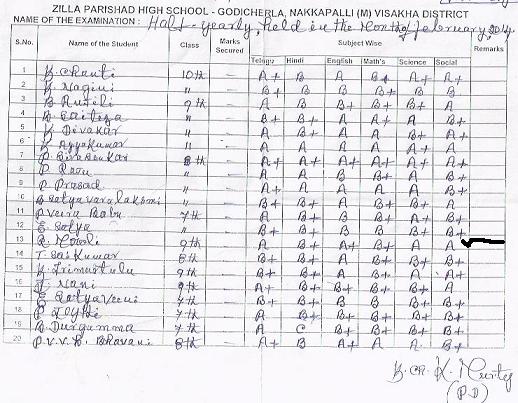 ZILLA PARISHAD HIGH SCHOOL - GODICHERLA, NAKKAPALLI (M) VISAKHA DISTRICT
NAME OF THE EXAMINATION : Half-yearly, held in the Month of february, 2014.
S.No. Name of the Student Class Marks Secured Subject Wise Remarks
Telugu Hindi English Math's Science Social
1 K. Chanti 10th A+ B A B+ A+ A+
2 K. Nagini " B+ B B B B B
3 B. 9th A B B+ B+ B+ A
4 " B+ B+ A A A B+
5 K. Divakar " A A A A B+ B+
6 K. Ayyakumar " A B A A B+ A
7 8th A+ A+ A+ A+ A+ A+
8 P. Raju " A A B B+ A B+
9 P. Prasad " A A A A A B+
10 B Satya varalakshmi " B+ B+ B B+ B B+
11 P. Veira Babu 7th A B+ A B+ A B+
12 E. Satya " B+ B+ B B+ B B+
13 R. Mouli 9th A B A+ B+ A A
14 T. Sai Kumar 8th B+ B+ A B+ B+ B+
15 K. Trimurtulu 9th B+ B+ A B+ A A+
16 J. Nani 9th A+ B+ B+ B+ B+ B+
17 E Satyaveni 7th B+ B+ B B B+ B+
18 P. Jyothi 7th A B+ B+ B+ B+ B+
19 R. Durgamma 7th A C B+ B+ B+ B+
20 P.V.V.L. Bhavani 8th A+ B A+ A A B+
K. Murty
(P.D)